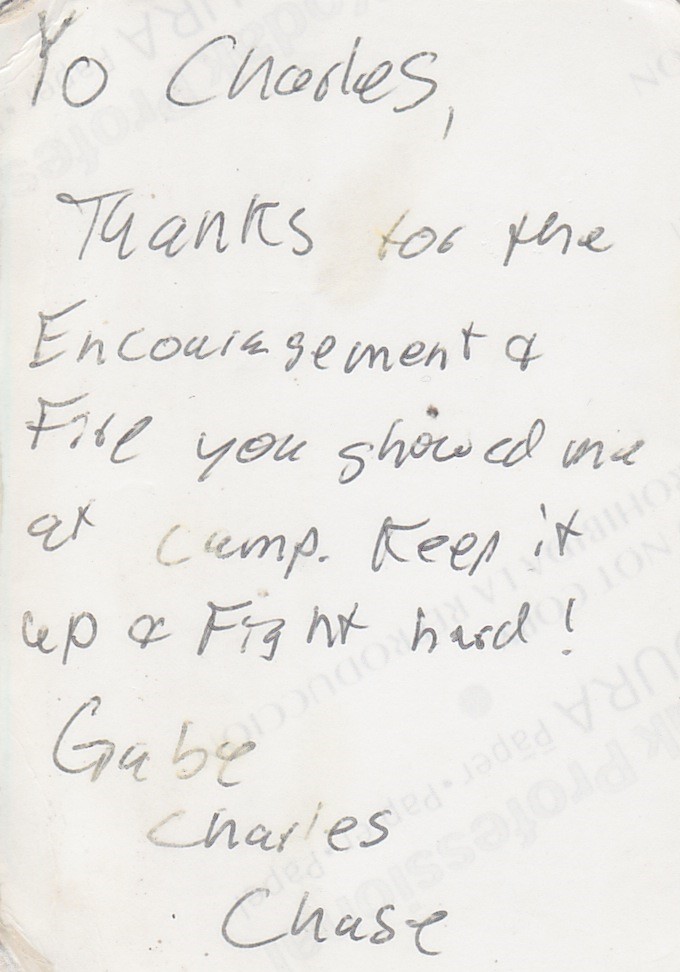 Yo Charles,
Thanks for the
Encouragement &
Fire you showed me
at camp. Keep it
up & Fight hard!
Gabe
Charles
Chase